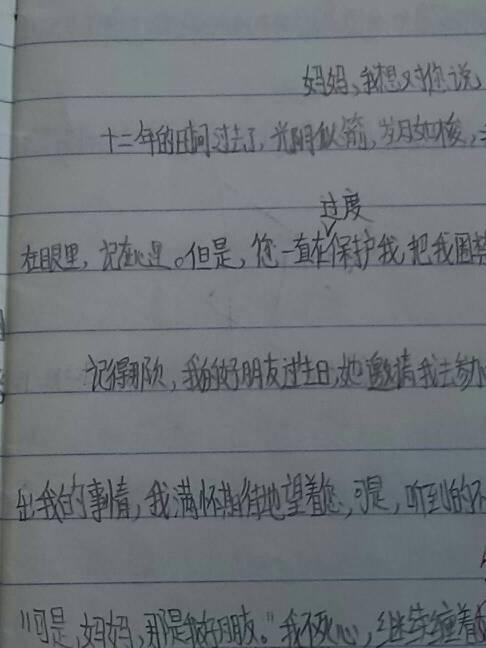 妈妈,我想对你说
十二年的时间过去了,光阴似箭,岁月如梭,
过度
在眼里,记在心里。但是,您一直在保护我,把我困
记得那次,我的好朋友过生日,她邀请我去参加
出我的事情,我满怀期待地望着您,可是,听到的
"可是,妈妈,那是我好朋友。"我不死心,继续缠着